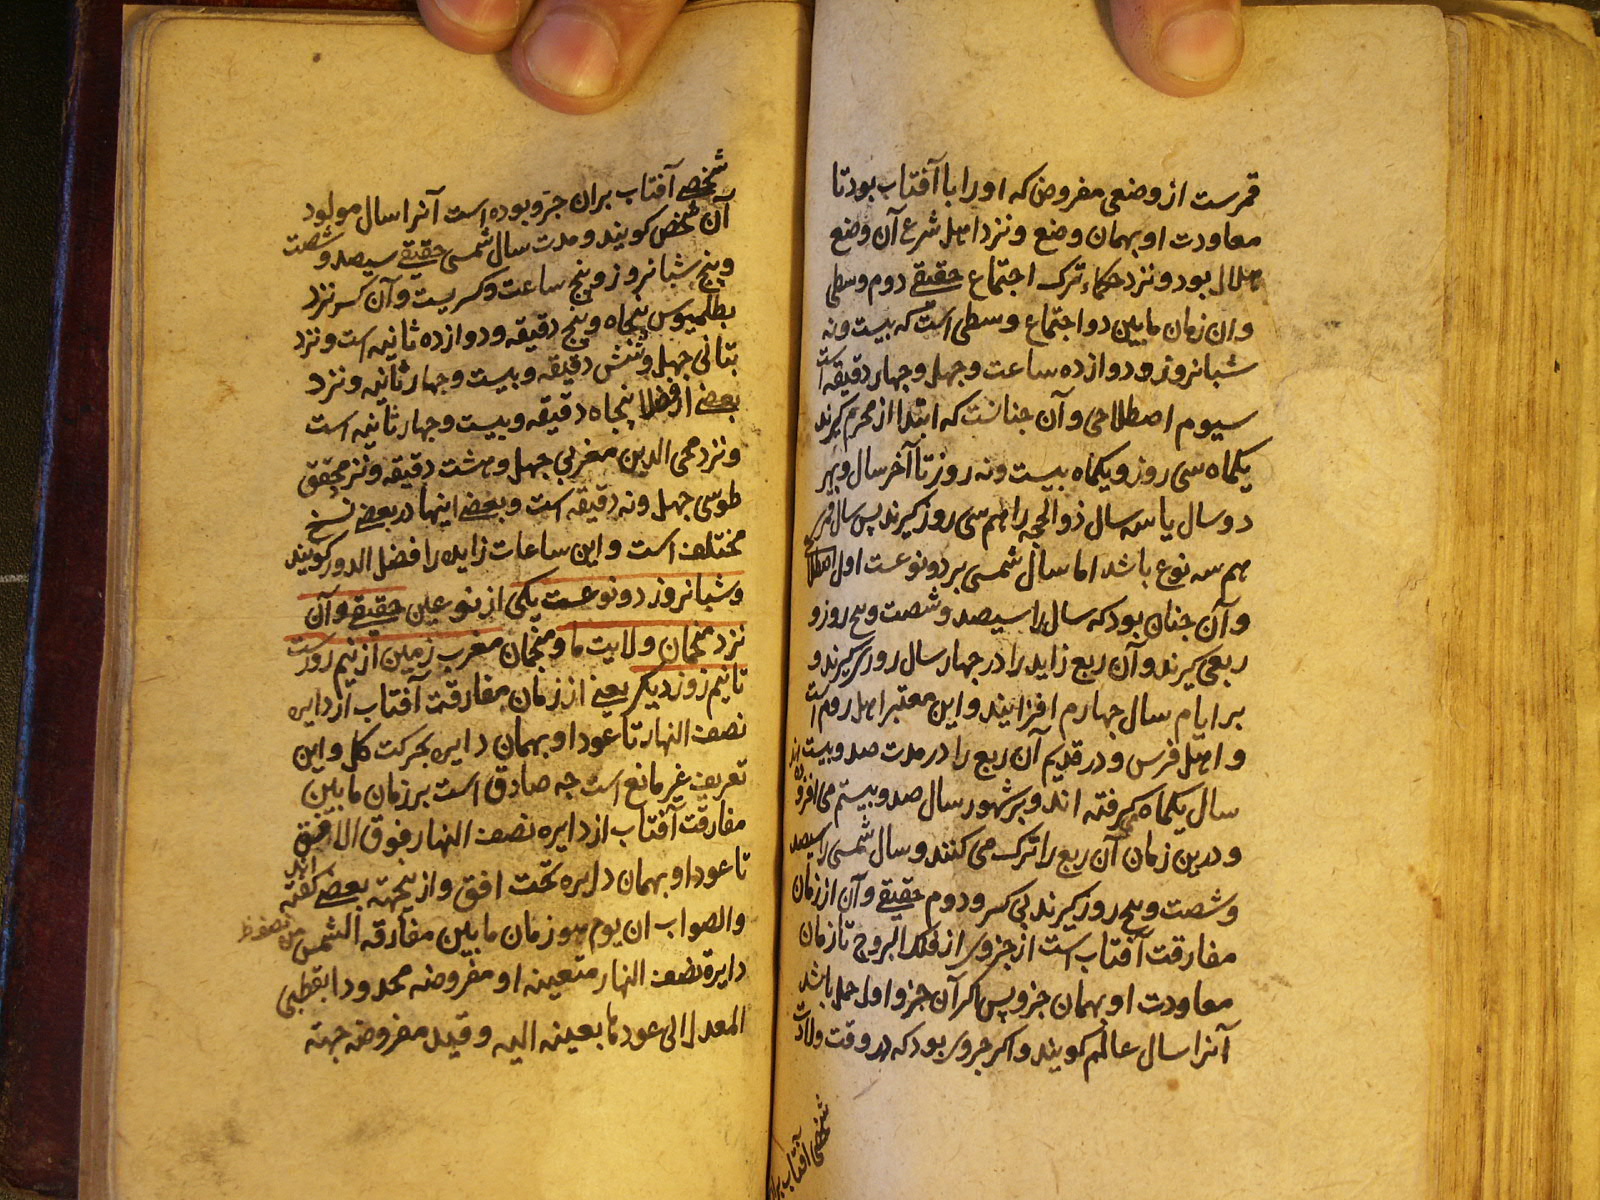 قمرست از وضعی مفروض که او را با آفتاب بود تا
معاودت او بهمان وضع و نزد اهل شرع آن وضع
هلال بود و نزد حکماء ترک اجتماع حقیقے دوم وسطی
وان زمان مابین دو اجتماع وسطی است که بیست ونه
شبانروز و دوازده ساعت و جهل و جهار دقیقه است
سیوم اصطلاحی و آن جنانست که ابتدا از محرم کیرند
یکماه سی روز و یکماه بیست ونه روز تا آخر سال و بهر
دو سال یا سه سال ذو الحجه را هم سی روز کیرند پس سال قمری
هم سه نوع باشد اما سال شمسی بر دو نوعست اول اصطلاحی
و آن جنان بود که سال را سیصد و شصت و پنج روز و
ربعی کیرند و آن ربع زاید را در جهار سال روزی کیرند و
بر ایام سال جهارم افزایند و این معتبر اهل روم است
و اهل فرس و در قدیم آن ربع را در مدت صد و بیست
سال یکماه کرفته اند و بر شهور سال صد و بیستم می افزوده اند
و درین زمان آن ربع را ترک می کنند و سال شمسی را سیصد
و شصت و پنج روز کیرند بی کسر و دوم حقیقے و آن از زمان
مفارقت آفتاب است از جزوی از فلک البروج تا زمان
معاودت او بهمان جزو پس اکر آن جزو اول حمل باشد
آنرا سال عالم کویند و اکر جزوی بود که در وقت ولادت
شخصی آفتاب بران
شخصے آفتاب بران جزو بوده است آنرا سال مولود
آن شخص کویند و مدت سال شمسی حقیقے سیصد و شصت
و پنج شبانروز و پنج ساعت و کسریست و آن کسر نزد
بطلمیوس پنجاه و پنج دقیقه و دوازده ثانیه است و نزد
بتانی جهل و شش دقیقه و بیست و جهار ثانیه و نزد
بعضے از فضلا پنجاه دقیقه و بیست و جهار ثانیه است
و نزد محی الدین مغربی جهل و هشت دقیقه و نزد محقق
طوسی جهل ونه دقیقه است و بعضے اینها در بعضے نسخ
مختلف است و این ساعات زایده را فضل الدور کویند
و شبانروز دو نوعست یکی از نوعین حقیقے و آن
نزد منجمان ولایت ما و منجمان مغرب زمین از نیم روزست
تا نیم روز دیکر یعنے از زمان مفارقت آفتاب از دایره
نصف النهار تا عود او بهمان دایره بحرکت کل و این
تعریف غیر مانع است جه صادق است بر زمان مابین
مفارقت آفتاب از دایره نصف النهار فوق الافق
تا عود او بهمان دایره تحت افق و ازینجهته بعضے کفته اند
والصواب ان یوم هو زمان مابین مفارقه الشمس من نصف
دایرة نصف النهار متعینه او مفروضه محدودا بقطبی
المعدل الی عودها بعینه الیه و قید مفروضه جهته